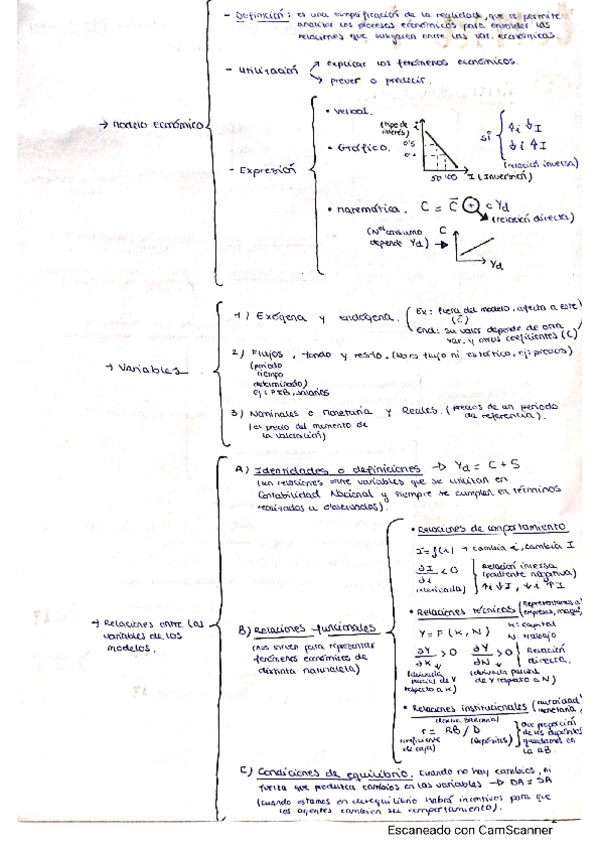 - Definición: es una simplificación de la realidad, que te permite
analizar los procesos económicos para entender las
relaciones que subyacen entre las var. económicas.
- Utilización
explicar los fenómenos económicos.
prever o predecir.
→ Modelo Económico
- Expresión
• Verbal.
• Gráfico.
(tipo de interés)
i
50 100 I (Inversión)
si
↑i ↓I
↓i ↑I
(relación inversa)
• Matemática. C = C̄ + c Yd
(relación directa)
consumo
depende Yd) → C
Yd
→ Variables
1) Exógena y endógena.
Ex: fuera del modelo, afecta a este
End: su valor depende de otra
var. y otros coeficientes (C)
2) Flujos, fondo y resto. (No es flujo ni ej: precios)
(periodo
tiempo
determinado)
ej: PXB, salarios
3) Nominales o Monetaria y Reales. (precios de un periodo
de referencia).
(el precio del momento de
la valoración)
→ Relaciones entre las
variables de los
modelos.
A) Identidades o definiciones → Yd = C + S
(son relaciones entre variables que se utilizan en
Contabilidad Nacional y siempre se cumplen en términos
realizados u observados).
B) Relaciones funcionales
(Nos sirven para representar
fenómenos económicos de
distinta naturaleza)
• Relaciones de comportamiento
I = f(i) → cambia i, cambia I
∂I/∂i < 0
(derivada)
Relación inversa
(pendiente negativa)
↑i ↓I, ↓i ↑I
• Relaciones técnicas
Y = F (K, N)
K: capital
N: trabajo
∂Y/∂K > 0 ∂Y/∂N > 0
Relación
directa.
(derivada
parcial de Y
respecto a K)
(derivada parcial
de Y respecto a N)
• Relaciones institucionales (autoridad
monetaria
r = RB / D
(coeficiente
de caja)
(depósitos)
Que proporción
de los depósitos
guardamos en
la RB.
C) Condiciones de equilibrio. Cuando no hay cambios, ni
fuerza que produzca cambios en las variables → DA = SA
(cuando estamos en desequilibrio habrá incentivos para que
los agentes cambien su comportamiento).
Escaneado con CamScanner